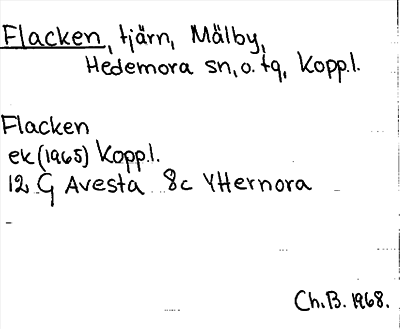 Flacken, tjärn, Mälby,
Hedemora sn, o. tg, Koppl.
Flacken
ek (1965) Koppl.
12 G Avesta 8c Ytternora
Ch.B. 1968.